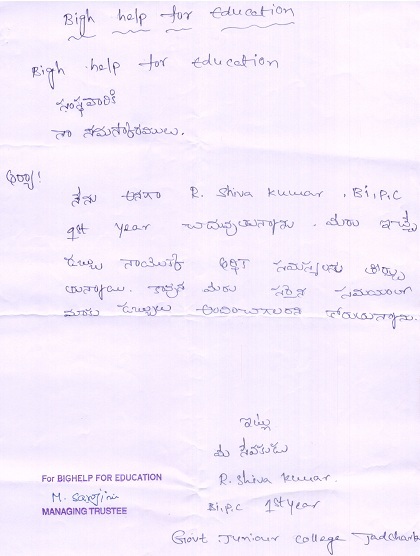 Bigh help for Education
Bigh help for education
సంస్థవారికి
నా నమస్కారములు.
ఆర్యా!
నేను అనగా R. Shiva kumar, Bi,P,C
1st year చదువుతున్నాను. మీరు ఇచ్చే
డబ్బు నాయొక్క ఆర్థిక సమస్యలను తీర్చు
తున్నాయి. కావున మీరు సరైన సమయంలో
మాకు డబ్బులు అందించగలరని కోరుతున్నాను.
ఇట్లు
మీ సేవకుడు
R. Shiva kumar.
Bi,P,C 1st year
Govt Juniour college Jadcharla
For BIGHELP FOR EDUCATION
M. Sarojini
MANAGING TRUSTEE